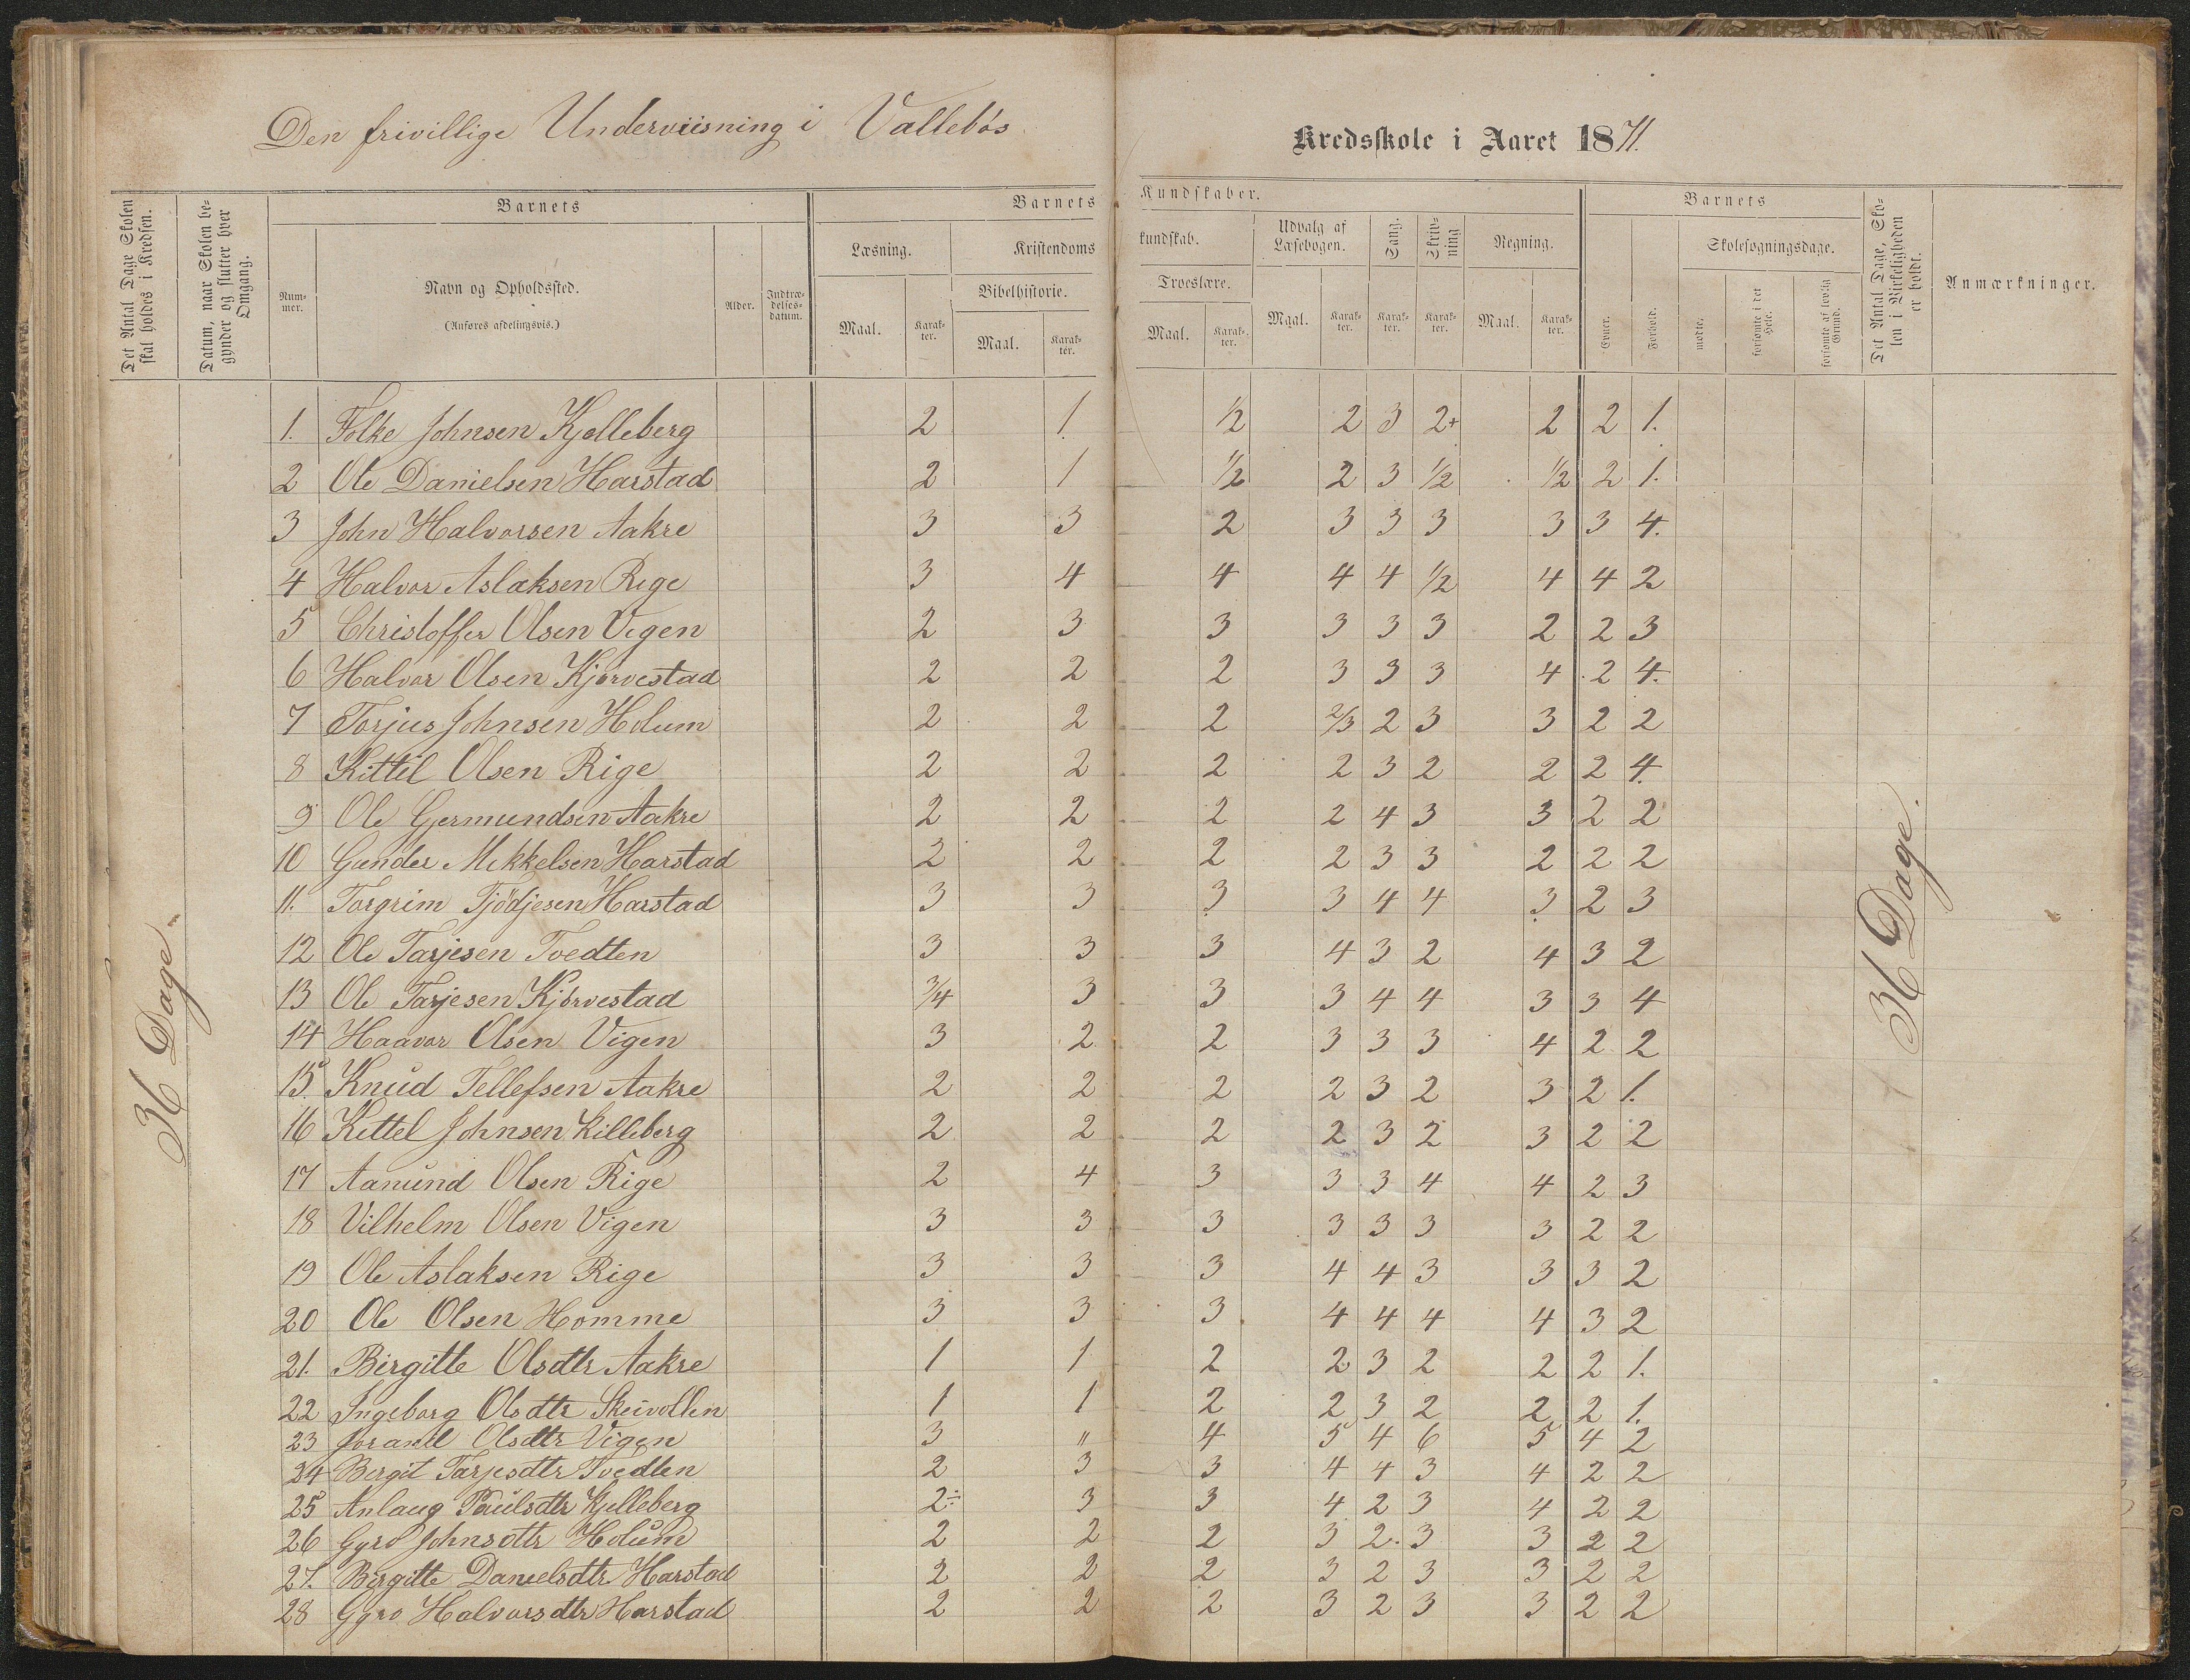 Den frivillige Underviisning i Vallebøs Kredsskole i Aaret 1871.
Det Antal Dage Skolen skal holdes i Kredsen.
Datum, naar Skolen begynder og slutter hver Omgang.
Barnets
Nummer.
Navn og Opholdssted.
(Anføres afdelingsvis.)
Alder.
Indtrædelsesdatum.
Barnets Kundskaber.
Læsning.
Kristendomskundskab.
Bibelhistorie.
Troeslære.
Udvalg af Læsebogen.
Sang.
Skrivning
Regning.
Maal. Karakter. Maal. Karakter. Maal. Karakter. Maal. Karakter. Karakter. Karakter. Maal. Karakter.
Barnets
Evner.
Forhold.
Skolesøgningsdage.
mødte.
forsømte i det Hele.
forsømte af lovlig Grund.
Det Antal Dage, Skolen i Virkeligheden er holdt.
Anmærkninger.
36 Dage.
1. Folke Johnsen Kjelleberg 2 1 1/2 2 3 2+ 2 2 1.
2 Ole Danielsen Harstad 2 1 1/2 2 3 1/2 1/2 2 1.
3 John Halvorsen Aakre 3 3 2 3 3 3 3 3 4.
4 Halvor Aslaksen Rige 3 4 4 4 4 1/2 4 4 2
5 Christoffer Olsen Vigen 2 3 3 3 3 3 2 2 3
6 Halvor Olsen Kjørvestad 2 2 2 3 3 3 4 2 4.
7 Torjus Johnsen Holum 2 2 2 2/3 2 3 3 2 2
8 Kittil Olsen Rige 2 2 2 2 3 2 2 2 4.
9 Ole Gjermundsen Aakre 2 2 2 2 4 3 3 2 2
10 Gunder Mikkelsen Harstad 2 2 2 2 3 3 2 2 2
11. Torgrim Tjödjesen Harstad 3 3 3 3 4 4 3 2 3
12 Ole Tarjesen Tvedten 3 3 3 4 3 2 4 3 2
13 Ole Tarjesen Kjørvestad 3/4 3 3 3 4 4 3 3 4
14 Haavor Olsen Vigen 3 2 2 3 3 3 4 2 2
15. Knud Tellefsen Aakre 2 2 2 2 3 2 3 2 1.
16 Kittel Johnsen Killeberg 2 2 2 2 3 2 3 2 2
17 Aanund Olsen Rige 2 4 3 3 3 4 4 2 3
18 Vilhelm Olsen Vigen 3 3 3 3 3 3 3 2 2
19 Ole Aslaksen Rige 3 3 3 4 4 3 3 3 2
20 Ole Olsen Homme 3 3 3 4 4 4 4 3 2
21. Birgitte Olsdtr Aakre 1 1 2 2 3 2 2 2 1.
22 Ingeborg Olsdtr Skeivollen 1 1 2 2 3 2 2 2 1.
23 Torand Olsdtr Vigen 3 " 4 5 4 6 5 4 2
24 Birgit Tarjesdtr Tvedten 2 3 3 4 4 3 4 2 2
25 Anlaug Paulsdtr Kjelleberg 2÷ 3 3 4 2 3 4 2 2
26 Gyro Johnsdtr Holum 2 2 2 3 2. 3 3 2 2
27. Birgitte Danielsdtr. Harstad 2 2 2 3 2 3 3 2 2
28 Gyro Halvorsdtr Harstad 2 2 2 3 2 3 3 2 2
36 Dage.